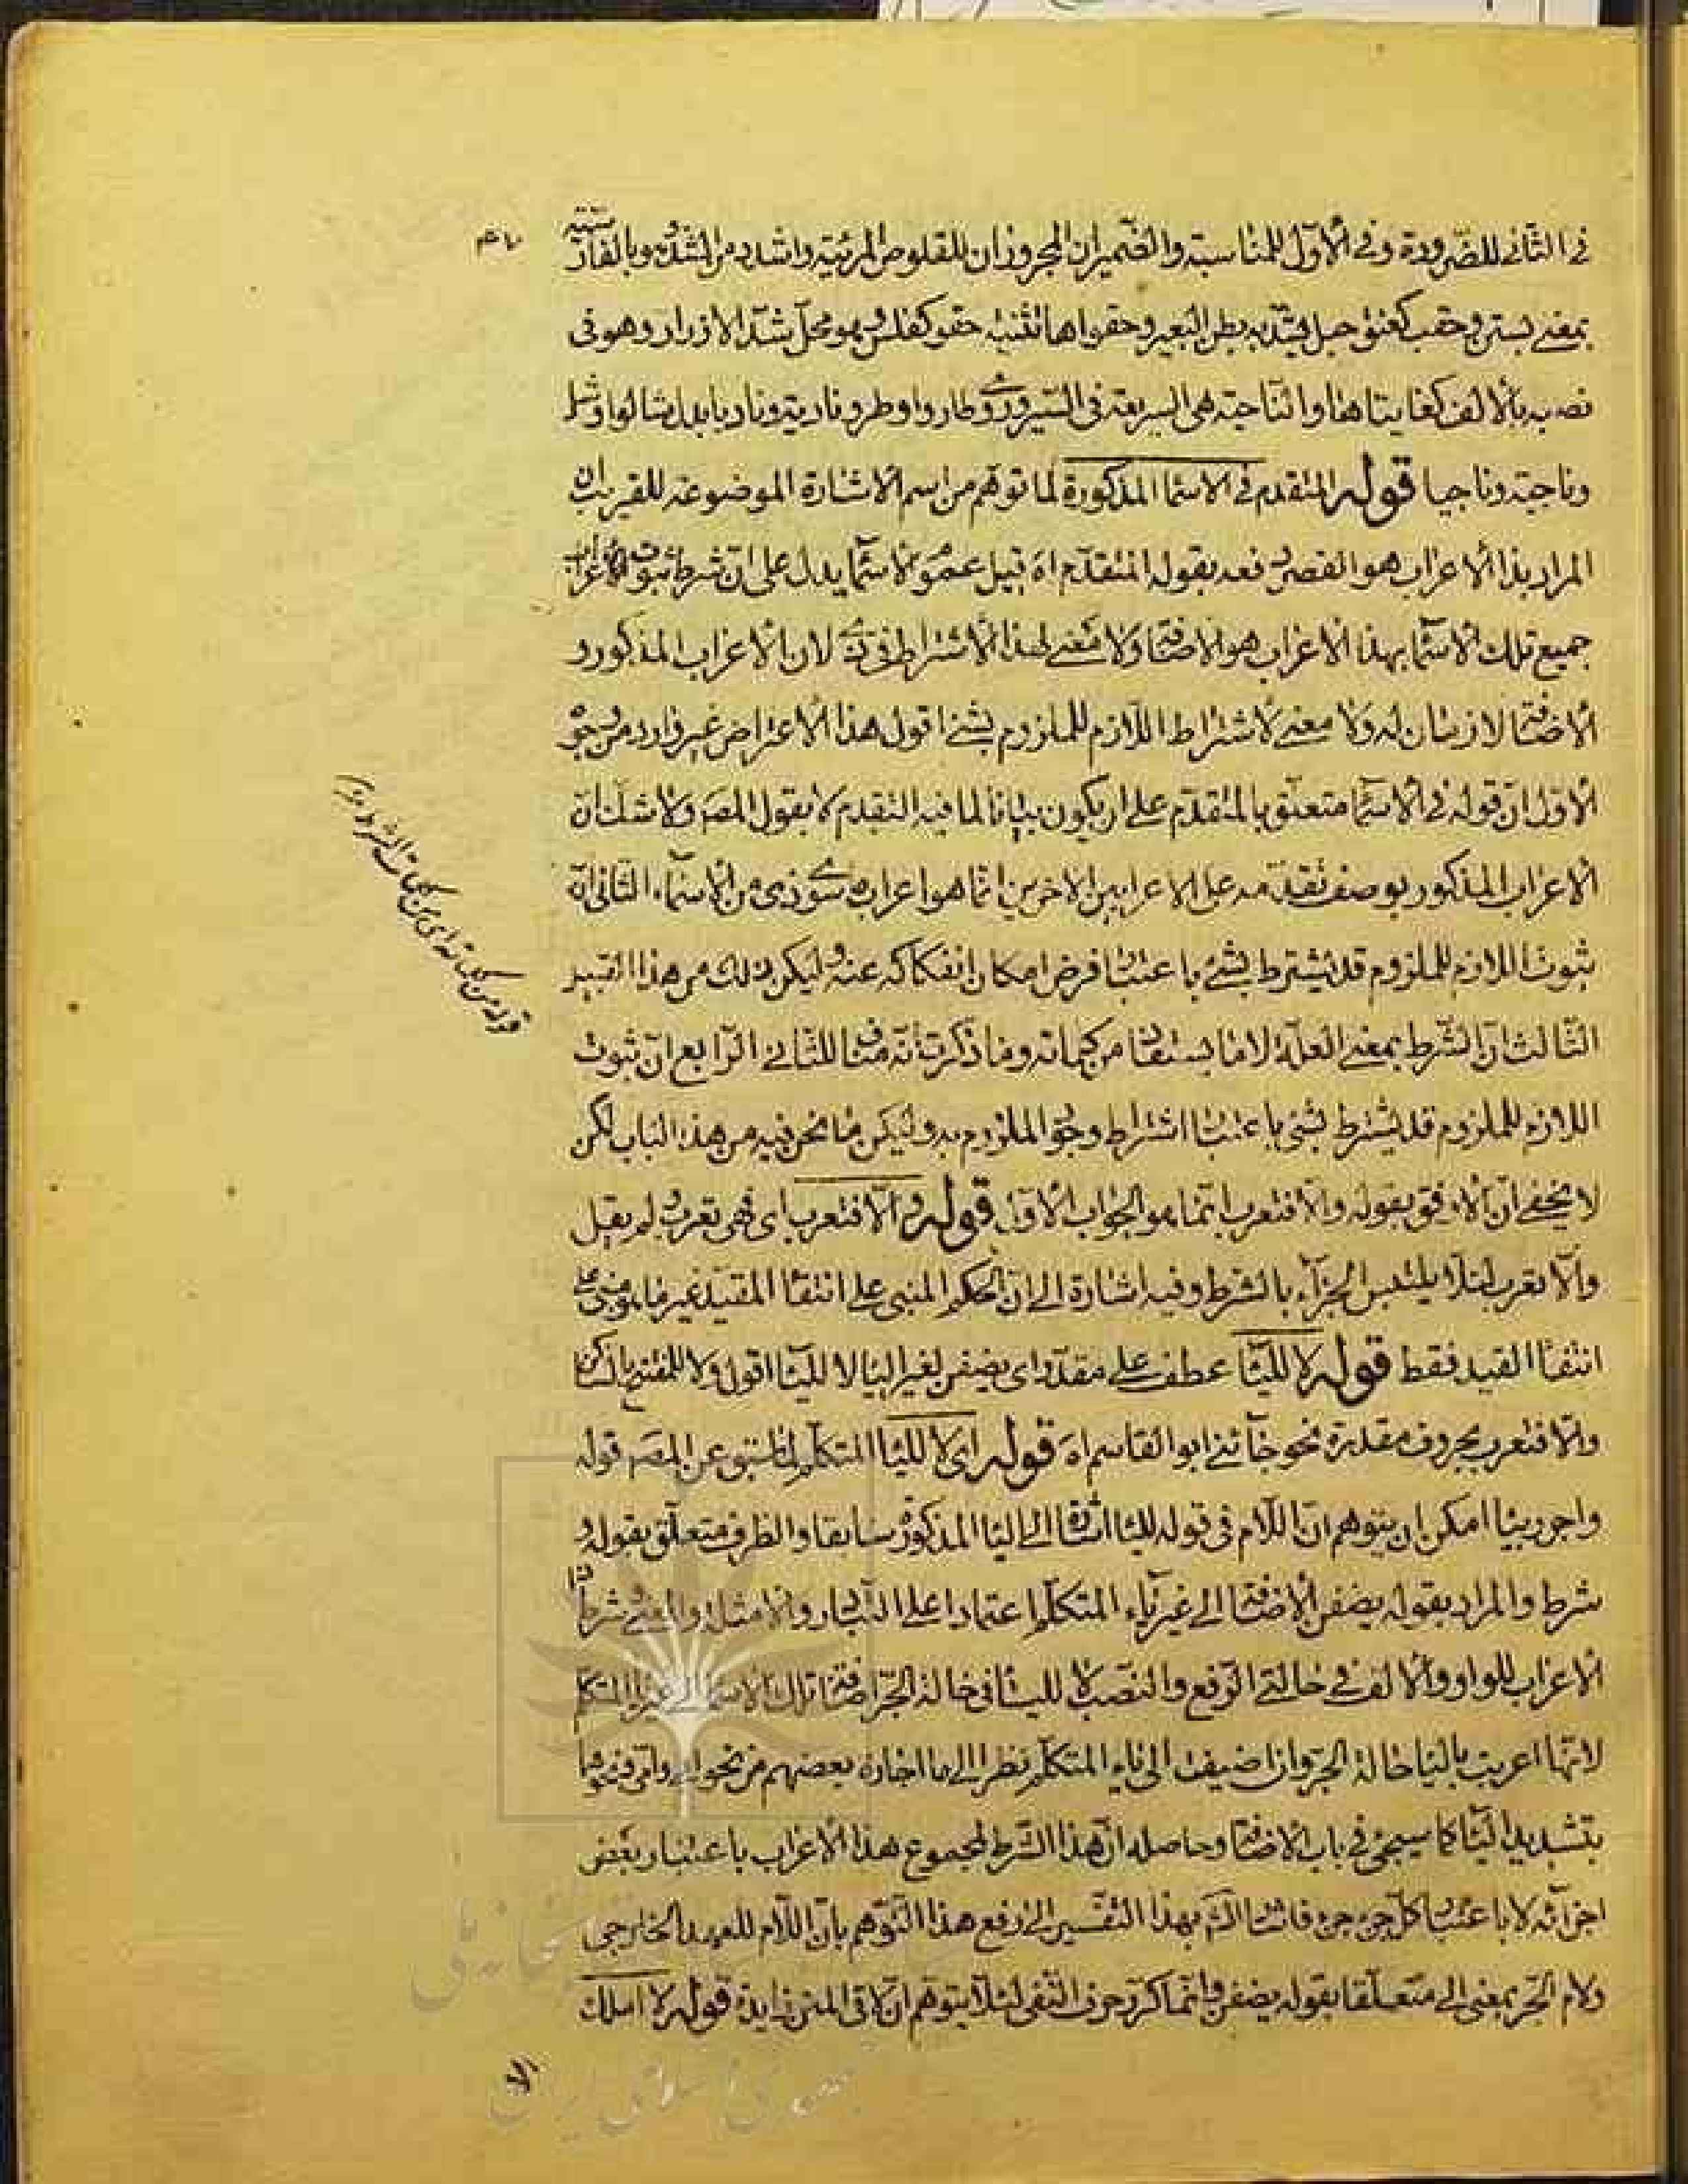 في الثاني للضرورة وفي الأول للمناسبة والضميران المجروران للقلوص المرئية واشدد من الشد وبالفارسية
بمعنى بستن وحقب كعنق حبل يشد به بطن البعير وحقواها تثنية حقو كفلس هو محل شد الازرار وهو في
نصبه بالالف كغايتاها والناجية هي السريعة في السير وروي طاروا وطر ونادية وناديا بدل شالوا وشل
وناجية وناجيا قوله المتقدم في الاسما المذكورة لما توهم من اسم الاشارة الموضوعة للقريب ان
المراد بذا الاعراب هو القصر دفعه بقوله المتقدم اه قيل عموم الاسما يدل على ان شرط ثبوت الاعراب
جميع تلك الاسما بهذا الاعراب هو الاضافة ولا معنى لهذا الاشتراط في ذي لان الاعراب المذكور و
الاضافة لازمان له ولا معنى لاشتراط اللازم للملزوم بشئ اقول هذا الاعتراض غير وارد من وجوه
الاول ان قوله في الاسما متعلق بالمتقدم على ان يكون بيانا لما فيه التقدم لا بقول المصـ ولا شك ان
الاعراب المذكور بوصف تقدمه على الاعرابين الاخرين انما هو اعراب سوى ذي من الاسماء الثاني ان
ثبوت اللازم للملزوم قد يشترط بشئ باعتبار فرض امكان انفكاكه عنه وليكن ذلك من هذا القبيل
الثالث ان الشرط بمعنى العلامة لا ما يستفاد من كلماته وما ذكرت انه مناف للثاني الرابع ان ثبوت
اللازم للملزوم قد يشترط بشئ باعتبار اشتراط وجود الملزوم به وليكن ما نحن فيه من هذا الباب لكن
لا يخفى ان الاوفق بقوله والا فتعرب انما هو الجواب الاول قوله والا فتعرب اي فهي تعرب لم يقل
والا تعرب لئلا يلتبس الجزاء بالشرط وفيه اشارة الى ان الحكم المنبي على انتفا المقيد غير ما هو مبني على
انتفا القيد فقط قوله لا لليا عطف على مقدر اي يضفن لغير اليا لا لليا اقول ولا للمفتتح بالساكن
والا فتعرب بحروف مقدرة نحو جائني ابو القاسم اه قوله اي لا لليا المتكلم لما سبق عن المصـ قوله
واجرر بيا امكن ان يتوهم ان اللام في قوله لليا اشارة الى اليا المذكورة سابقا والظرف متعلق بقوله و
شرط والمراد بقوله يضفن الاضافة الى غير ياء المتكلم اعتمادا على التبادر والامثلة والمعنى شرط ذا
الاعراب للواو والالف في حالتي الرفع والنصب لا لليا في حالة الجر اضافة تلك الاسما الى غير يا المتكلم
لانها اعربت باليا حالة الجر وان اضيفت الى ياء المتكلم نظرا الى ما اجازه بعضهم من نحو
بتشديد اليا كما سيجئ في باب الاضافة وحاصله ان هذا الشرط لمجموع هذا الاعراب باعتبار بعض
اجزائه لا باعتبار كل جزء جزء فاشار الشـ بهذا التفسير الى دفع هذا التوهم بان اللام للعهد الخارجي
ولام الجر بمعنى الى متعلقا بقوله يضفن وانما كرر حرف النفي لئلا يتوهم ان لا في المتن زايدة قوله لا املك
قوله من كلماته اي من كلمات الشرط
الا